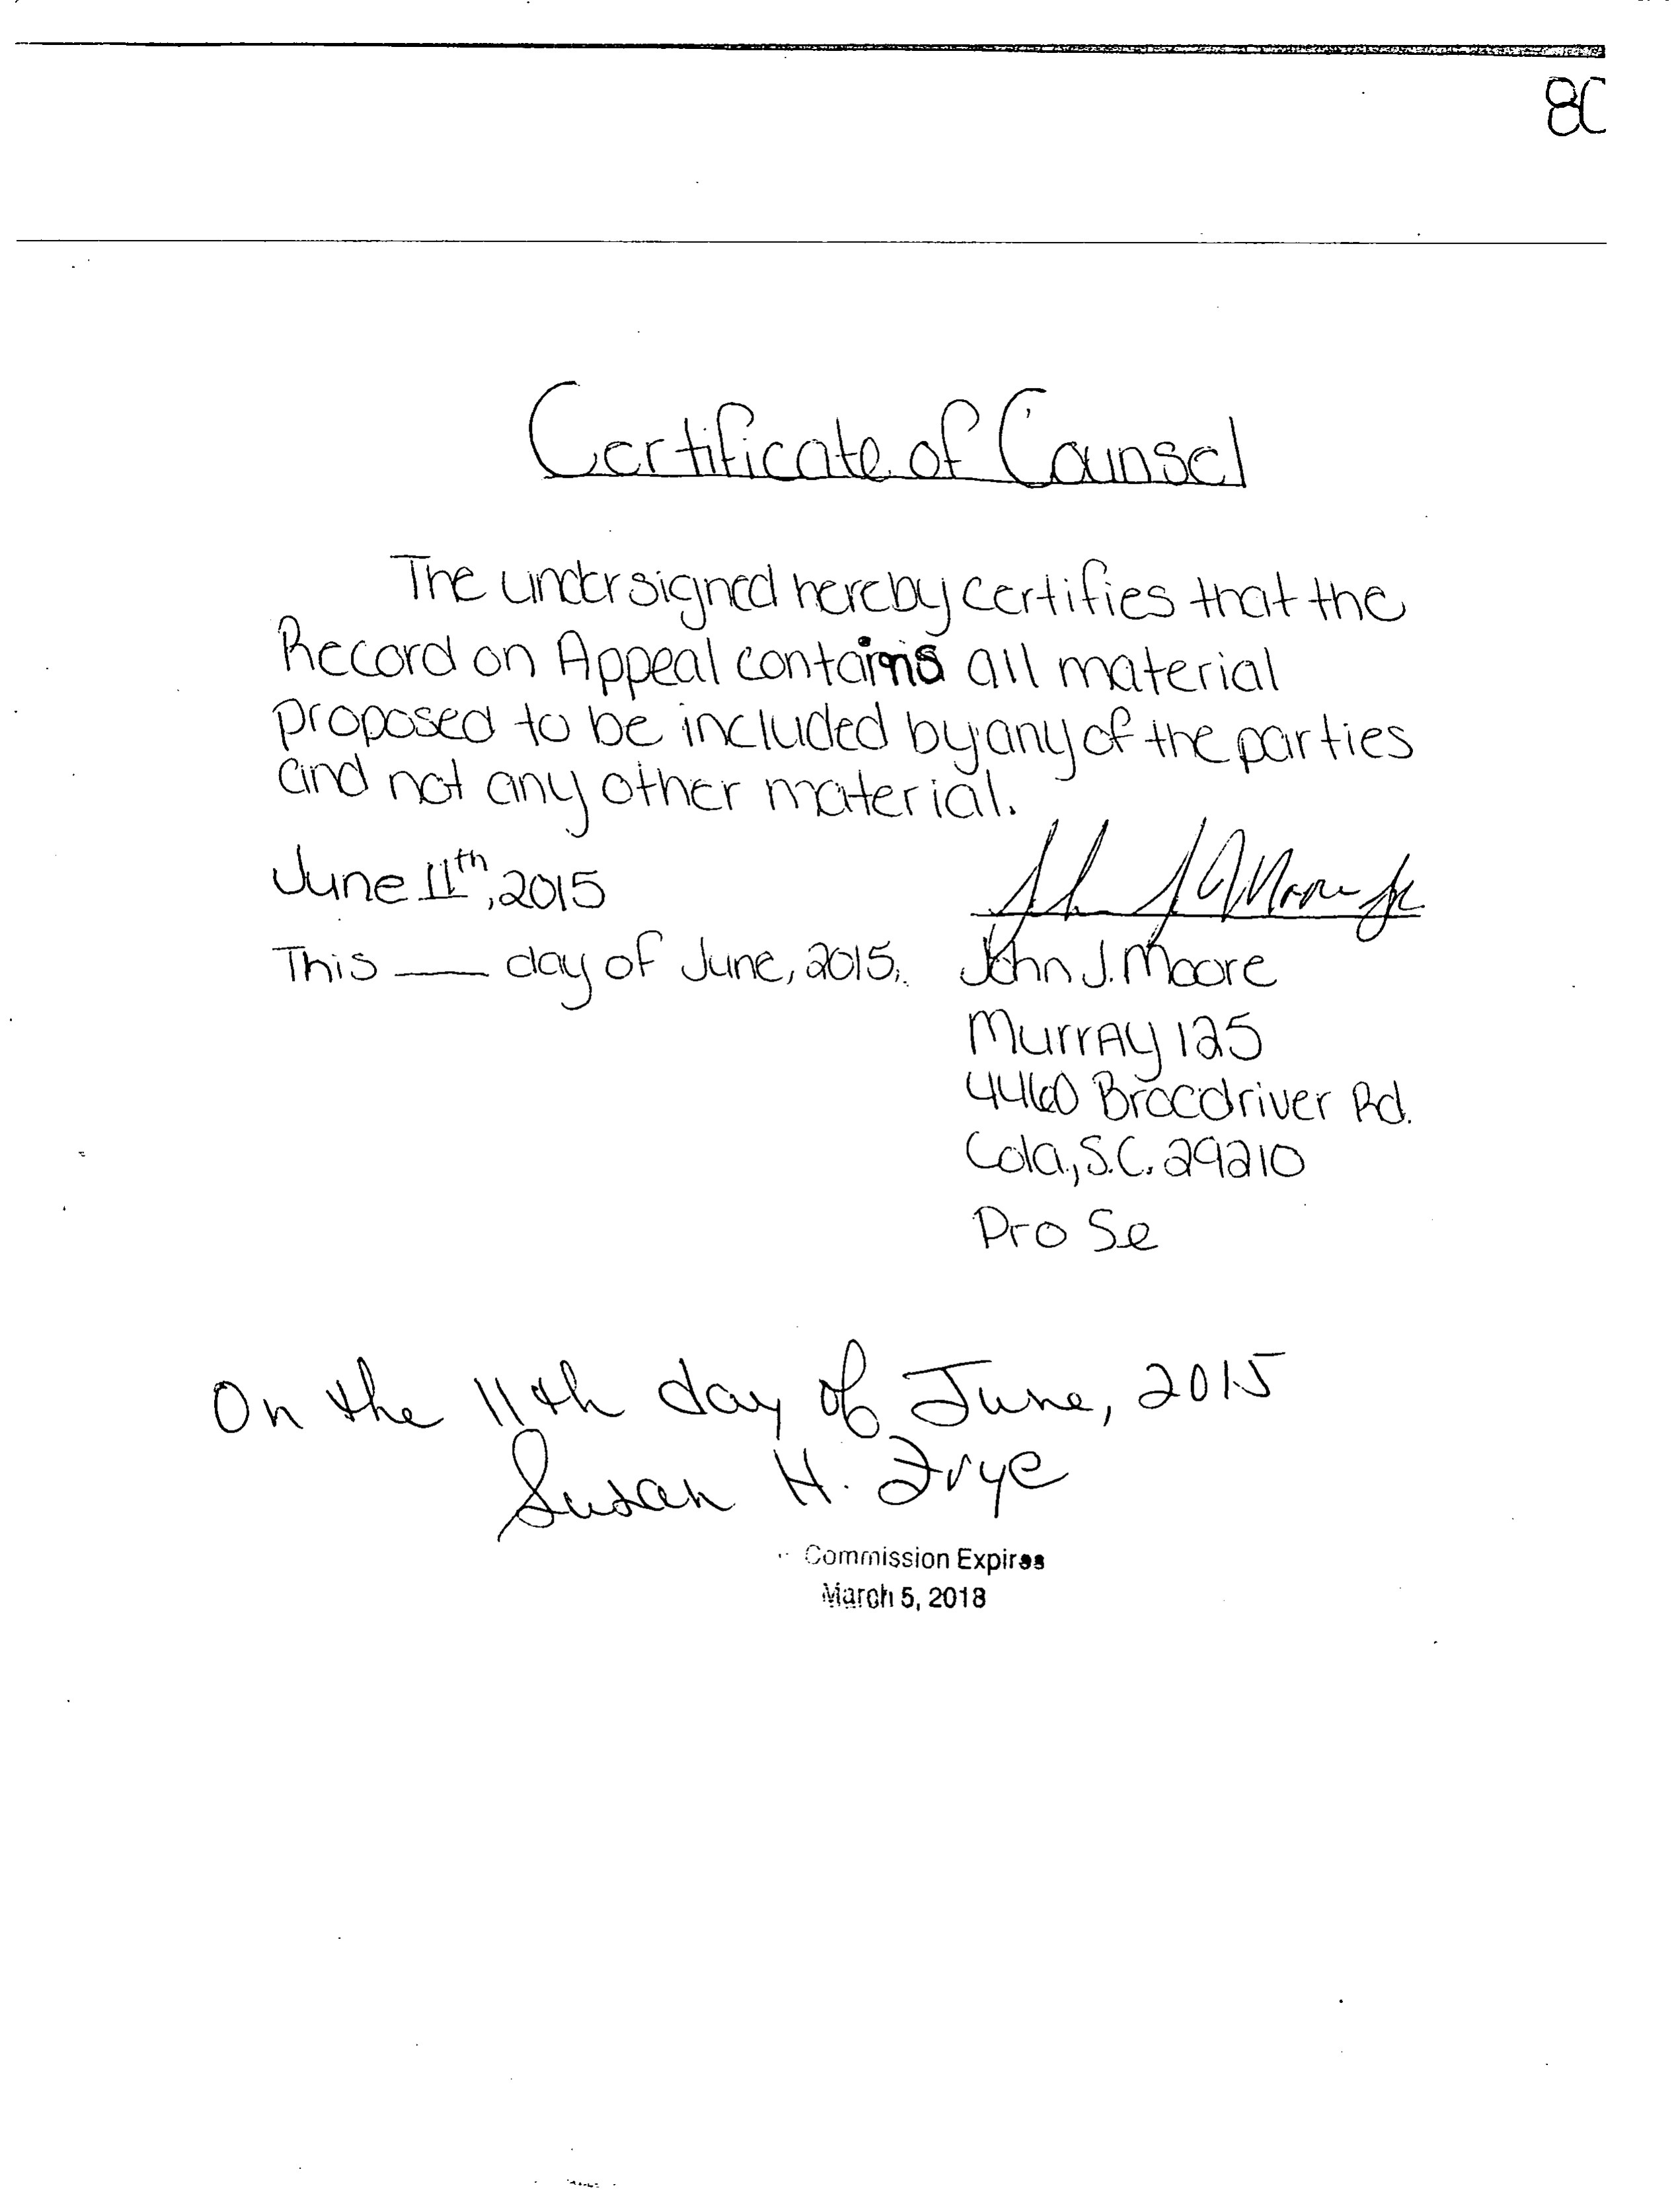 80
Certificate of Counsel
The undersigned hereby certifies that the
Record on Appeal contains all material
proposed to be included by any of the parties
and not any other material.
June 11th, 2015
This ___ day of June, 2015.
John J. Moore Jr
John J. Moore
Murray 125
4460 Broadriver Rd.
Cola., S.C. 29210
Pro Se
On the 11th day of June, 2015
Susan H. Frye
Commission Expires
March 5, 2018